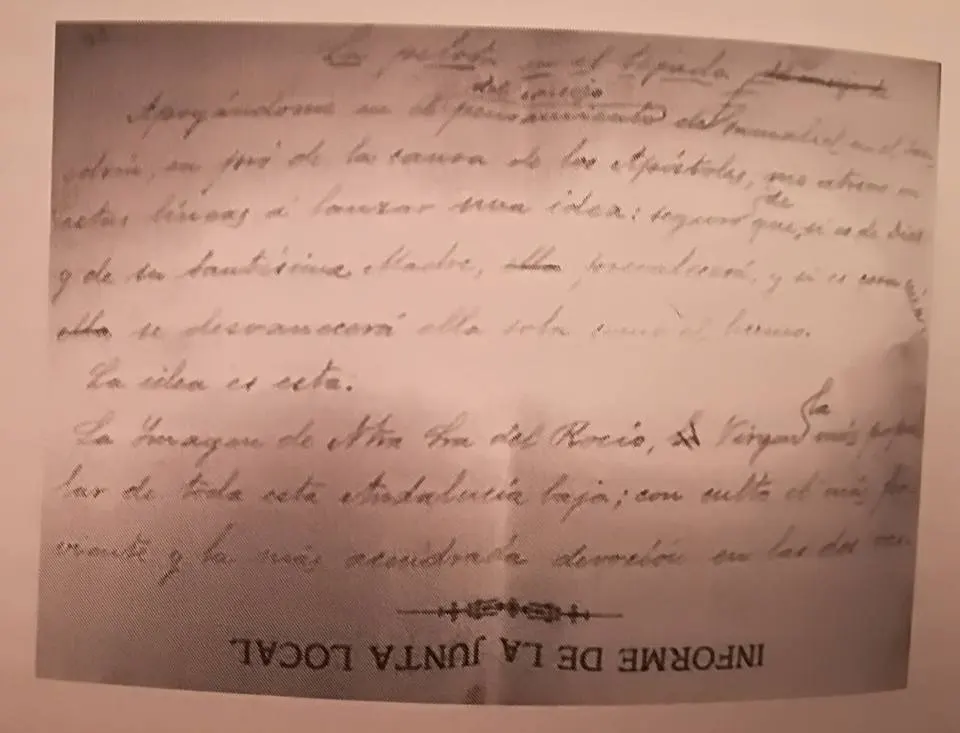 La pelota en el tejado
del consejo
Apoyándome en el pensamiento de Gamaliel, en el
en pró de la causa de los Apóstoles, me atrevo en
estas líneas á lanzar una idea: seguro de que, si es de Dios
y de su Santísima Madre, ella prevalecerá, y si es
ella se desvanecerá ella sola como el humo.
La idea es esta.
La Imagen de Ntra Sra del Rocío, la Virgen más popu
lar de toda esta Andalucía baja; con culto el más fer-
viente y la más acendrada devoción en las dos
INFORME DE LA JUNTA LOCAL